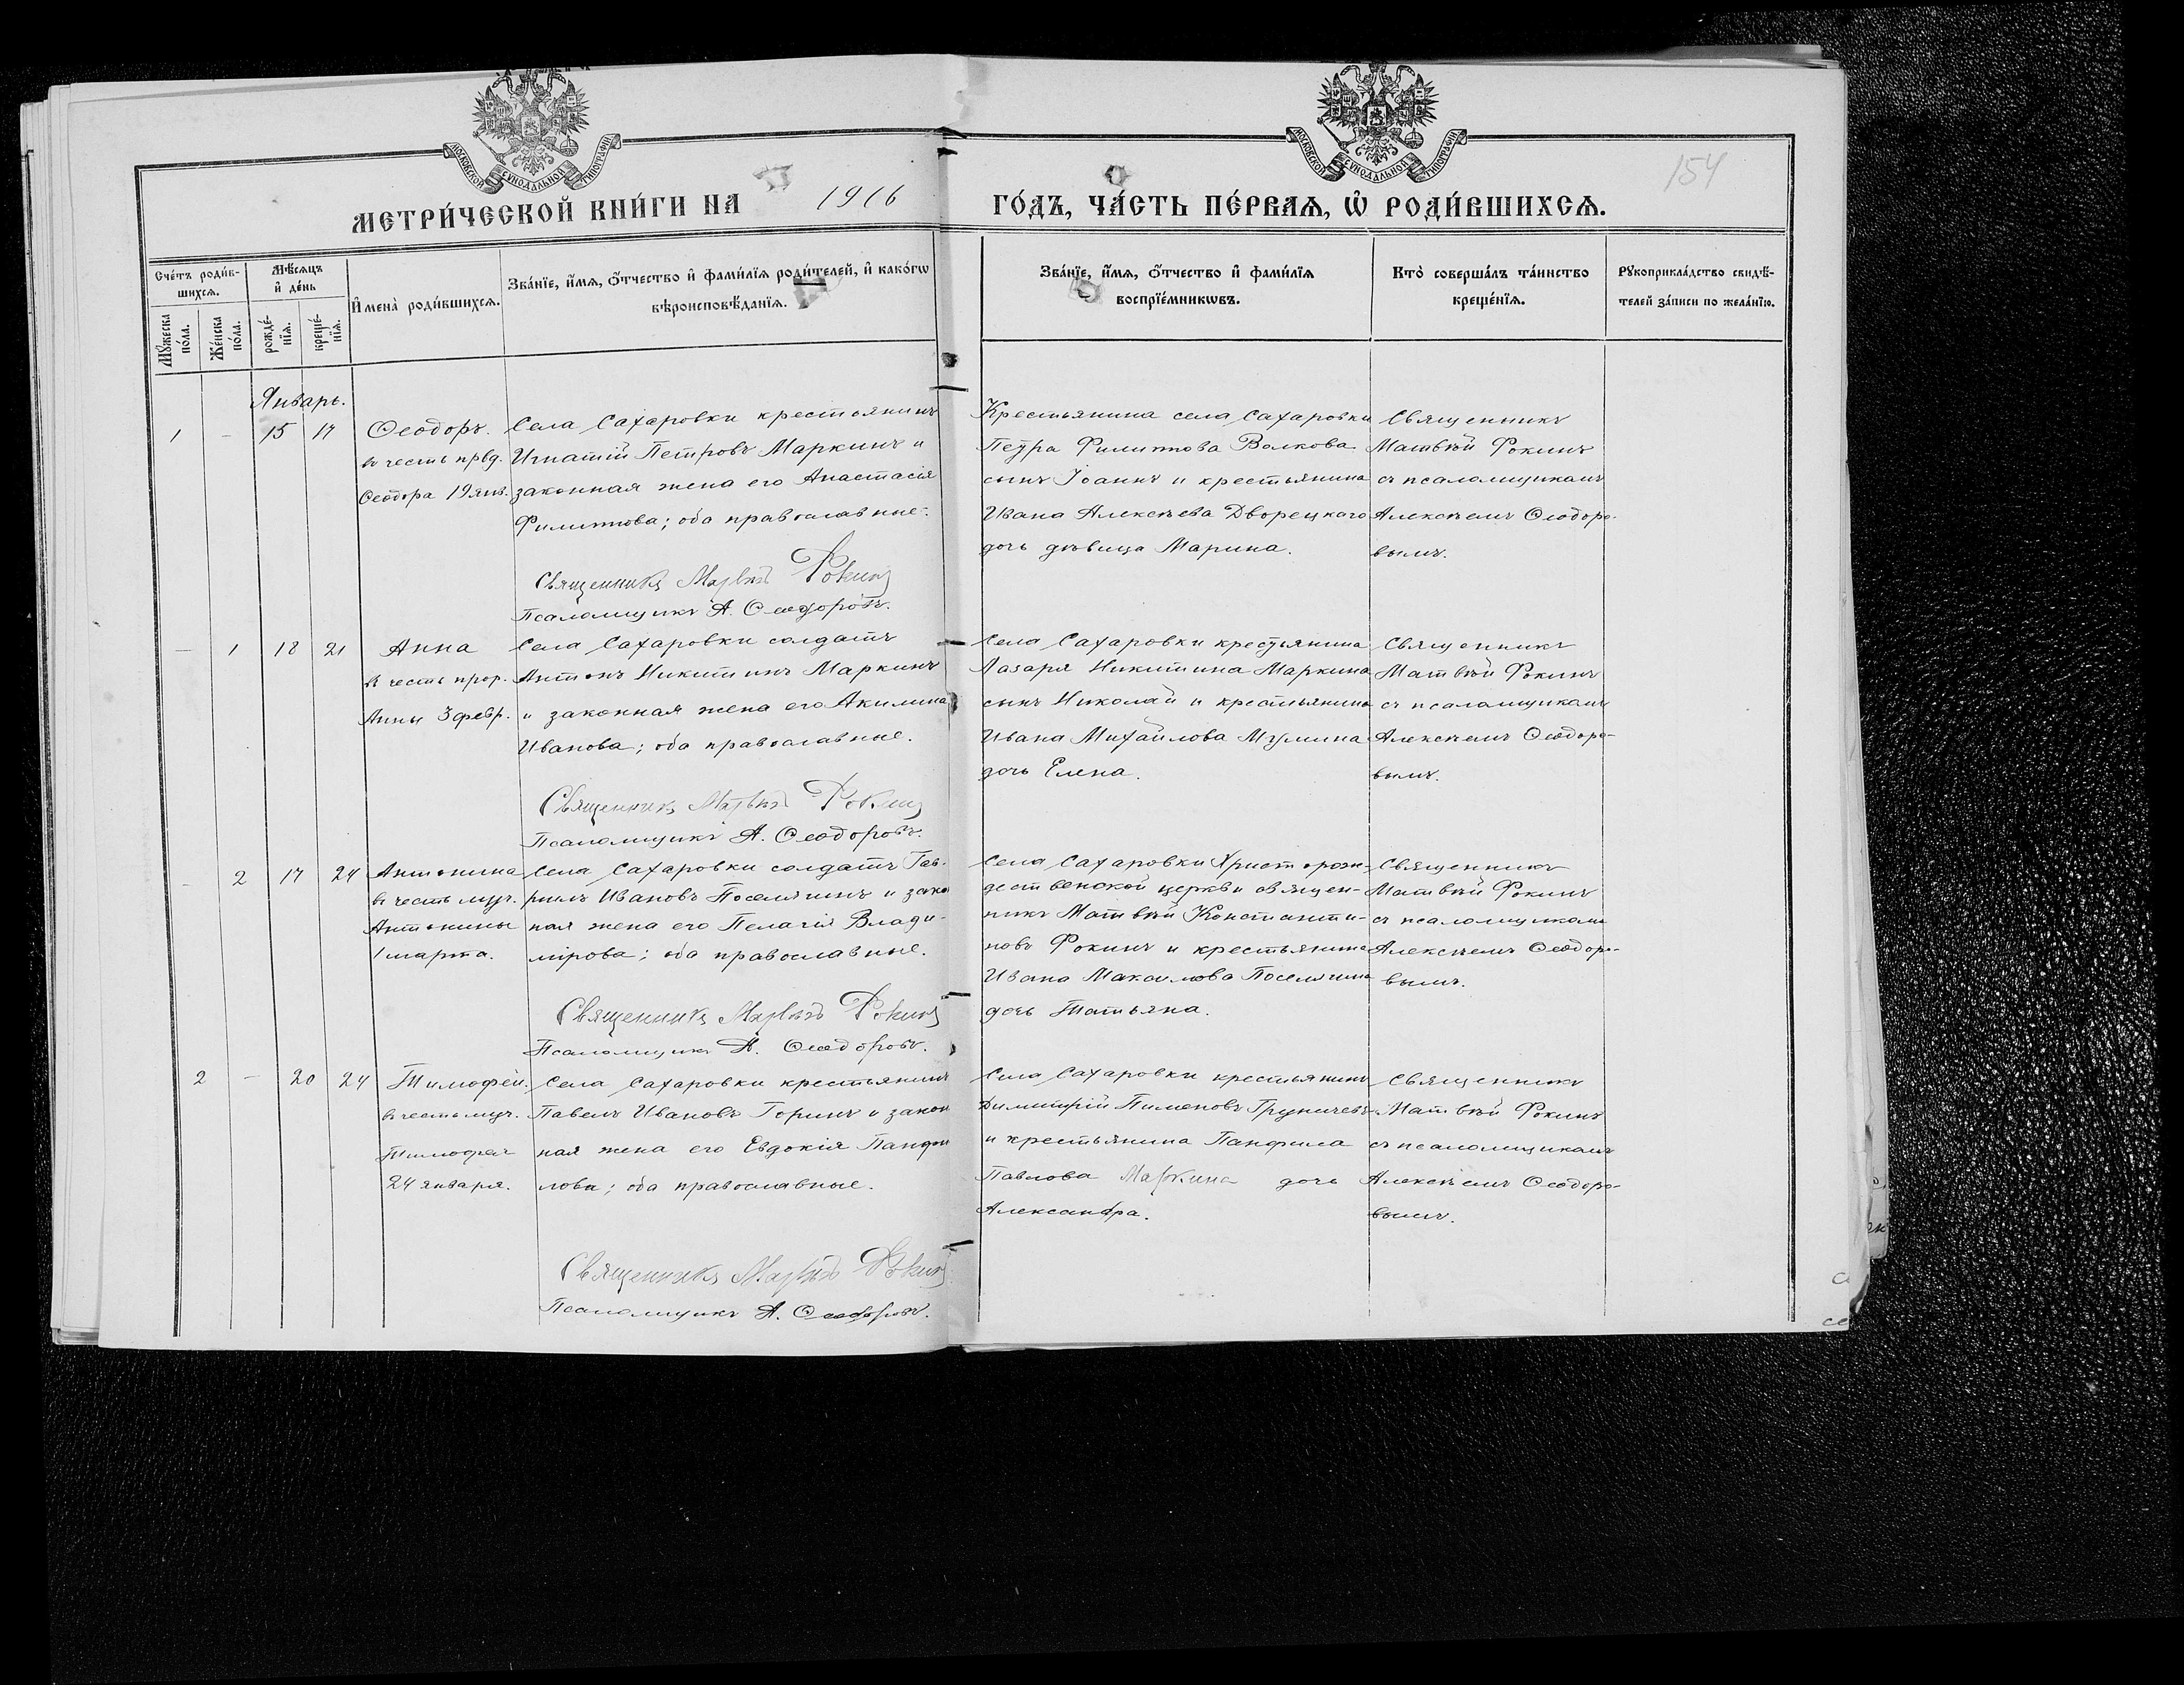 МОСКОВСКОЙ СѴНОДАЛЬНОЙ ТИПОГРАФІИ
МОСКОВСКОЙ СѴНОДАЛЬНОЙ ТИПОГРАФІИ
154
МЕТРИ́ЧЕСКОЙ КНИ́ГИ НА 1916 ГО́ДЪ, ЧА́СТЬ ПЕ́РВАѦ, Ѡ҆ РОДИ́ВШИХСѦ.
Сче́тъ роди́в-
шихсѧ.
Мꙋ́жеска
по́ла.
Же́нска
по́ла.
Мѣ́сѧцъ
и҆ де́нь
рожде́-
нїѧ.
креще́-
нїѧ.
И҆мена̀ роди́вшихсѧ.
Зва́нїе, и҆́мѧ, ѻ҆́тчество и҆ фами́лїѧ роди́телей, и҆ како́гѡ
вѣроисповѣ́данїѧ.
Зва́нїе, и҆́мѧ, ѻ҆́тчество и҆ фами́лїѧ
воспрїе́мникѡвъ.
Кто̀ соверша́лъ та́инство
креще́нїѧ.
Рꙋкоприкла́дство свидѣ́-
телей за́писи по жела́нїю.
Январь.
1 - 15 17
Ѳеодоръ.
въ честь првд.
Ѳеодора 19 янв.
Села Сахаровки крестьянинъ
Игнатій Петровъ Маркинъ и
законная жена его Анастасія
Филиппова; оба православные.
Священникъ Матвѣй Фокинъ
Псаломщикъ А. Ѳеодоровъ.
Крестьянина села Сахаровки
Петра Филиппова Волкова
сынъ Іоаннъ и крестьянина
Ивана Алексѣева Дворецкаго
дочь дѣвица Марина.
Священникъ
Матвѣй Фокинъ
съ псаломщикомъ
Алексѣемъ Ѳеодоро-
вымъ.
- 1 18 21
Анна
въ честь прор.
Анны 3 февр.
Села Сахаровки солдатъ
Антонъ Никитинъ Маркинъ
и законная жена его Акилина
Иванова; оба православные.
Священникъ Матвѣй Фокинъ
Псаломщикъ А. Ѳеодоровъ.
Села Сахаровки крестьянина
Лазаря Никитина Маркина
сынъ Николай и крестьянина
Ивана Михайлова
дочь Елена.
Священникъ
Матвѣй Фокинъ
съ псаломщикомъ
Алексѣемъ Ѳеодоро-
вымъ.
- 2 17 24
Антонина
въ честь муч.
Антонины
1 марта.
Села Сахаровки солдатъ Гав-
риилъ Ивановъ Поселягинъ и закон
ная жена его Пелагія Влади-
мірова; оба православные.
Священникъ Матвѣй Фокинъ
Псаломщикъ А. Ѳеодоровъ.
Села Сахаровки Христорож-
дественской церкви священ-
никъ Матвѣй Константи-
новъ Фокинъ и крестьянина
Ивана Максимова Поселягина
дочь Татьяна.
Священникъ
Матвѣй Фокинъ
съ псаломщикомъ
Алексѣемъ Ѳеодоро-
вымъ.
2 - 20 24
Тимофей
въ честь муч.
Тимофея
24 января.
Села Сахаровки крестьянинъ
Павелъ Ивановъ Горинъ и закон
ная жена его Евдокія Панфи
лова; оба православные.
Священникъ Матвѣй Фокинъ
Псаломщикъ А. Ѳеодоровъ.
Села Сахаровки крестьянинъ
Димитрій Пименовъ
и крестьянина Панфила
Павлова Маркина дочь
Александра.
Священникъ
Матвѣй Фокинъ
съ псаломщикомъ
Алексѣемъ Ѳеодоро-
вымъ.